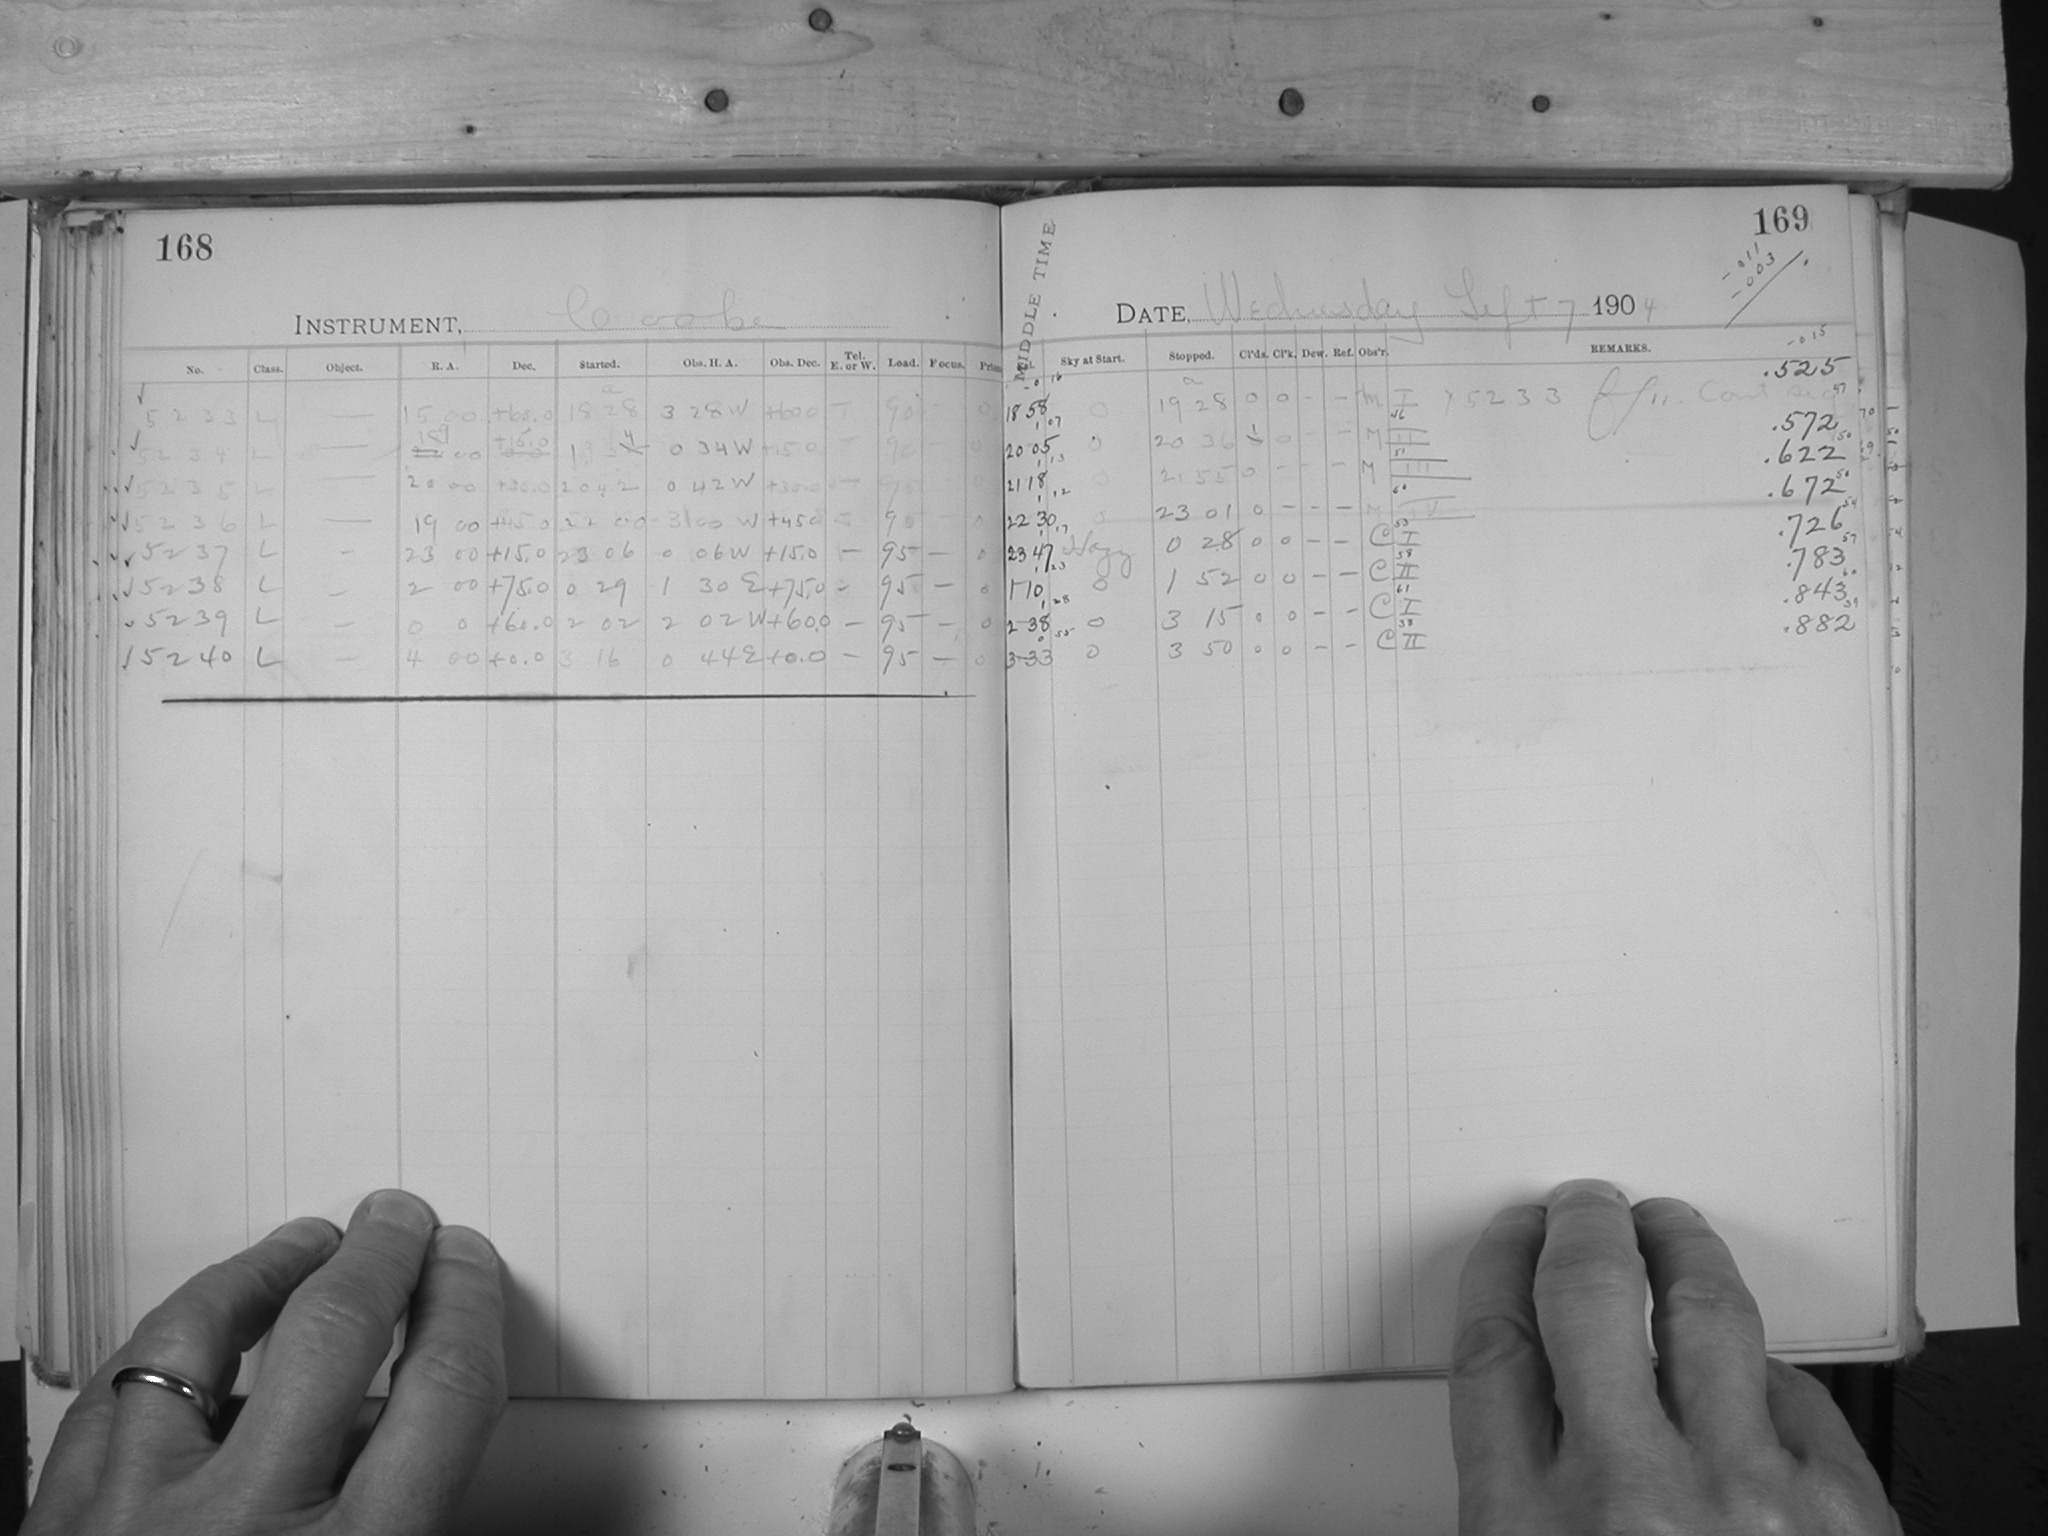 168
INSTRUMENT, Cooke
No. Class. Object. R. A. Dec. Started. Obs. H. A. Obs. Dec. Tel. E. or W. Load. Focus.
5233 L — 15 00 +60.0 18 28 3 28 W +60.0 90 — 0
5234 L — 19 00 +15.0 0 34 W +15.0 — 90 — 0
5235 L — 20 00 +30.0 20 42 0 42 W +30.0 —
5236 L — 19 00 +45.0 22 00 3 00 W +45.0 — 90 — 0
5237 L — 23 00 +15.0 23 06 0 06 W +15.0 — 95 — 0
15238 L — 2 00 +75.0 0 29 1 30 E +75.0 — 95 — 0
5239 L — 0 0 +60.0 2 02 2 02 W +60.0 — 95 — 0
15240 L — 4 00 +0.0 3 16 0 44 E +0.0 — 95 — 0
169
MIDDLE TIME
-.011
-.003
DATE, Wednesday Sept 7 1904
Sky at Start. Stopped. Cl'ds. Cl'k. Dew. Ref. Obs'r. REMARKS.
-.015
18 58 0 19 28 0 0 - - M I 5233 .525
20 05 0 20 36 0 - - M II .572
21 18 0 21 55 0 - - - M III .622
22 30 0 23 01 0 - - - M IV .672
23 47 Hazy 0 28 0 0 - - C I .726
1 10 0 1 52 0 0 - - C II .783
2 38 0 3 15 0 0 - - C I .843
3 33 0 3 50 0 0 - - C II .882